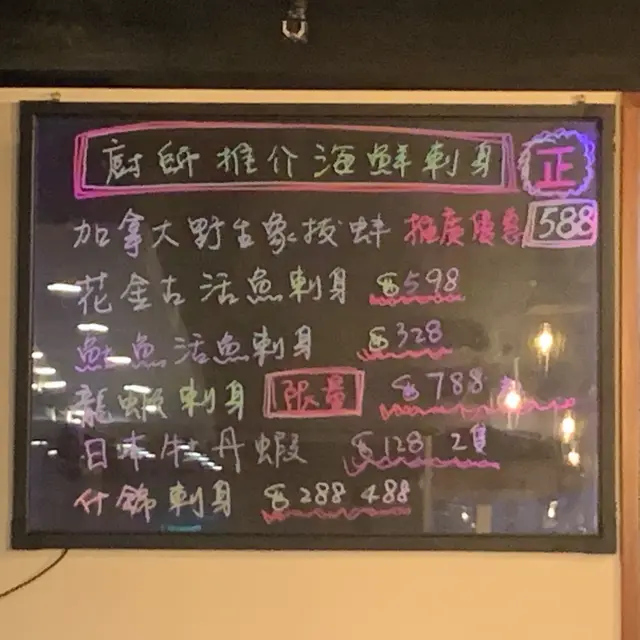 廚師推介海鮮刺身 正
加拿大野生象拔蚌 推廣優惠 588
花金古活魚刺身 $598
魚活魚刺身 $328
龍蝦刺身 限量 $788
日本牡丹蝦 $128 2隻
什錦刺身 $288 488